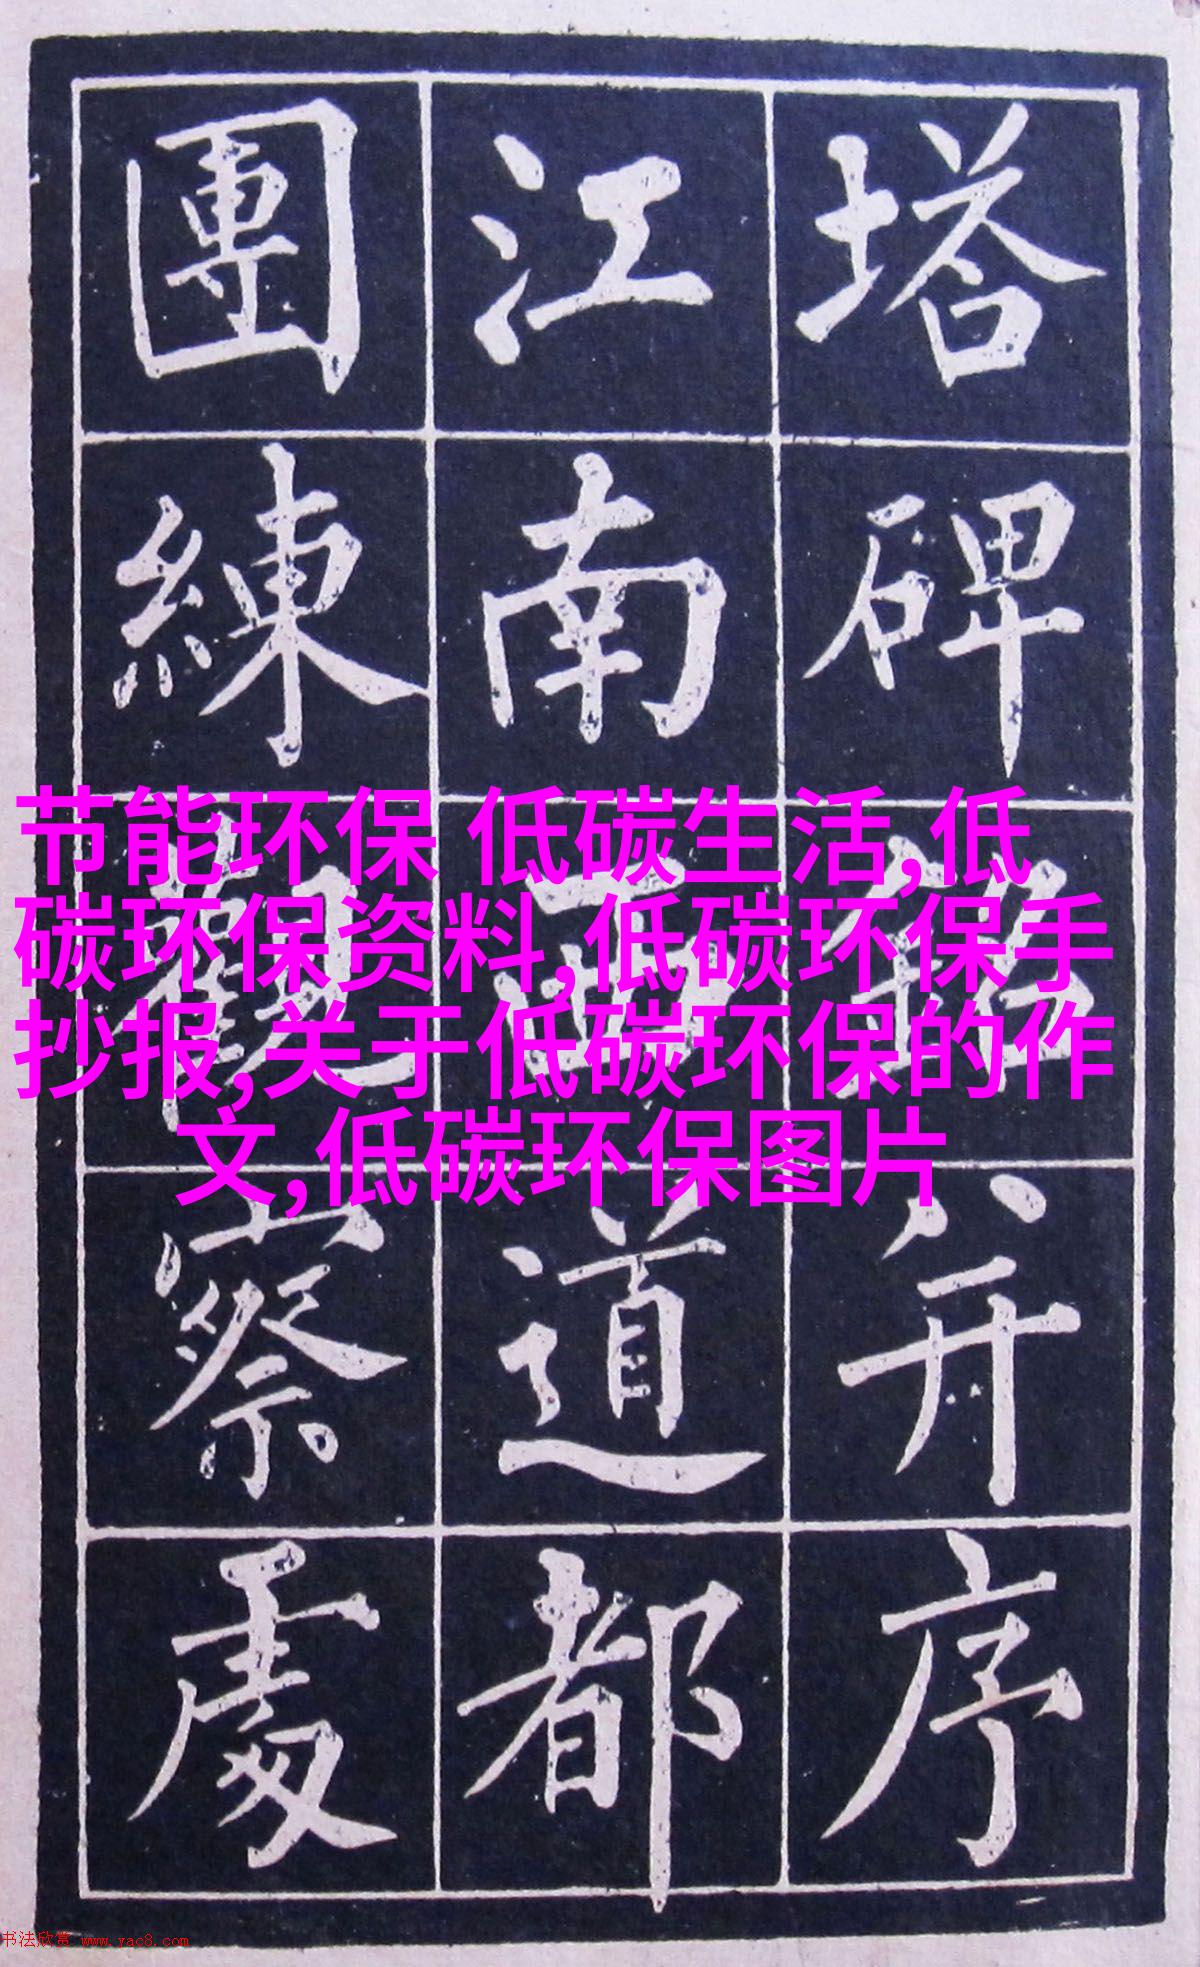 塔碑銘并序
江南西道都
團練觀察處
节能环保 低碳生活,低
碳环保资料,低碳环保手
抄报,关于低碳环保的作
文,低碳环保图片
书法欣赏 www.yac8.com